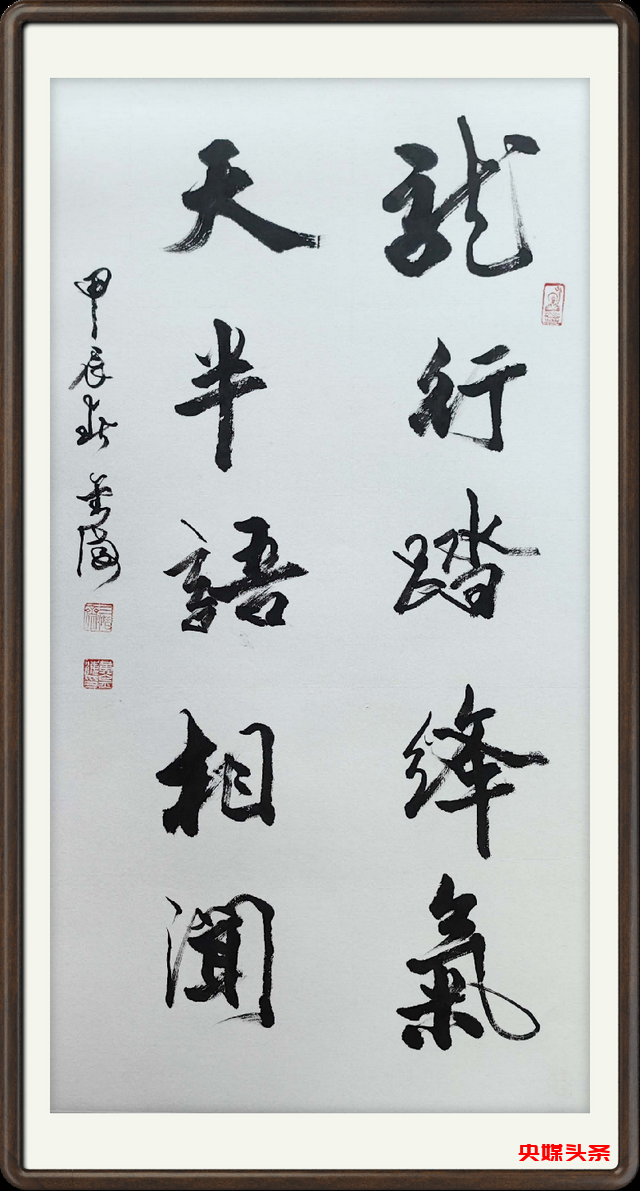 龍行踏絳氣
天半語相聞
甲辰
央媒头条